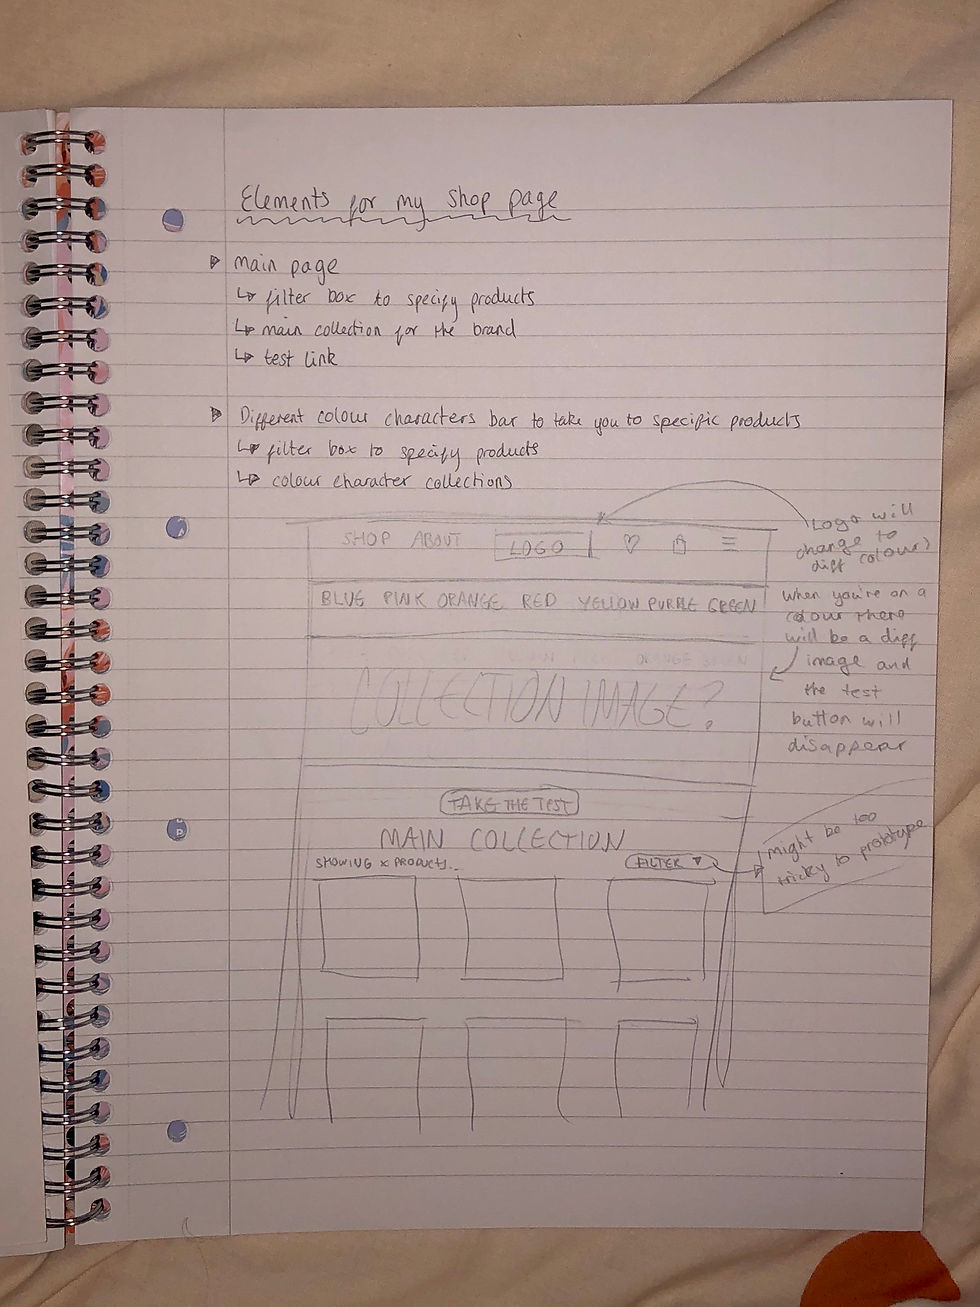 Elements for my shop page
main page
↳ filter box to specify products
↳ main collection for the brand
↳ test link
Different colour characters bar to take you to specific products
↳ filter box to specify products
↳ colour character collections
SHOP ABOUT LOGO
Logo will
change to
diff colours
BLUE PINK ORANGE RED YELLOW PURPLE GREEN
when you're on a
colour there
will be a diff
image and
the test
button will
disappear
ORANGE
COLLECTION IMAGE?
TAKE THE TEST
MAIN COLLECTION
SHOWING X PRODUCTS...
FILTER ▼
might be too
tricky to prototype